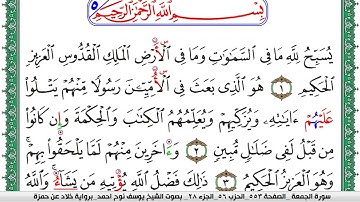 بِسْمِ اللَّهِ الرَّحْمَٰنِ الرَّحِيمِ
يُسَبِّحُ لِلَّهِ مَا فِي السَّمَٰوَٰتِ وَمَا فِي الْأَرْضِ الْمَلِكِ الْقُدُّوسِ الْعَزِيزِ
الْحَكِيمِ ١ هُوَ الَّذِي بَعَثَ فِي الْأُمِّيِّينَ رَسُولًا مِّنْهُمْ يَتْلُوا
عَلَيْهُمْ ءَايَٰتِهِ وَيُزَكِّيهِمْ وَيُعَلِّمُهُمُ الْكِتَٰبَ وَالْحِكْمَةَ وَإِن كَانُوا
مِن قَبْلُ لَفِي ضَلَٰلٍ مُّبِينٍ ٢ وَءَاخَرِينَ مِنْهُمْ لَمَّا يَلْحَقُوا بِهِمْ
وَهُوَ الْعَزِيزُ الْحَكِيمُ ٣ ذَٰلِكَ فَضْلُ اللَّهِ يُؤْتِيهِ مَن يَشَآءُ وَاللَّهُ
سورة الجمعة_الصفحة ٥٥٣_الحزب ٥٦_الجزء ٢٨_بصوت الشيخ يوسف نوح أحمد_برواية خلاد عن حمزة